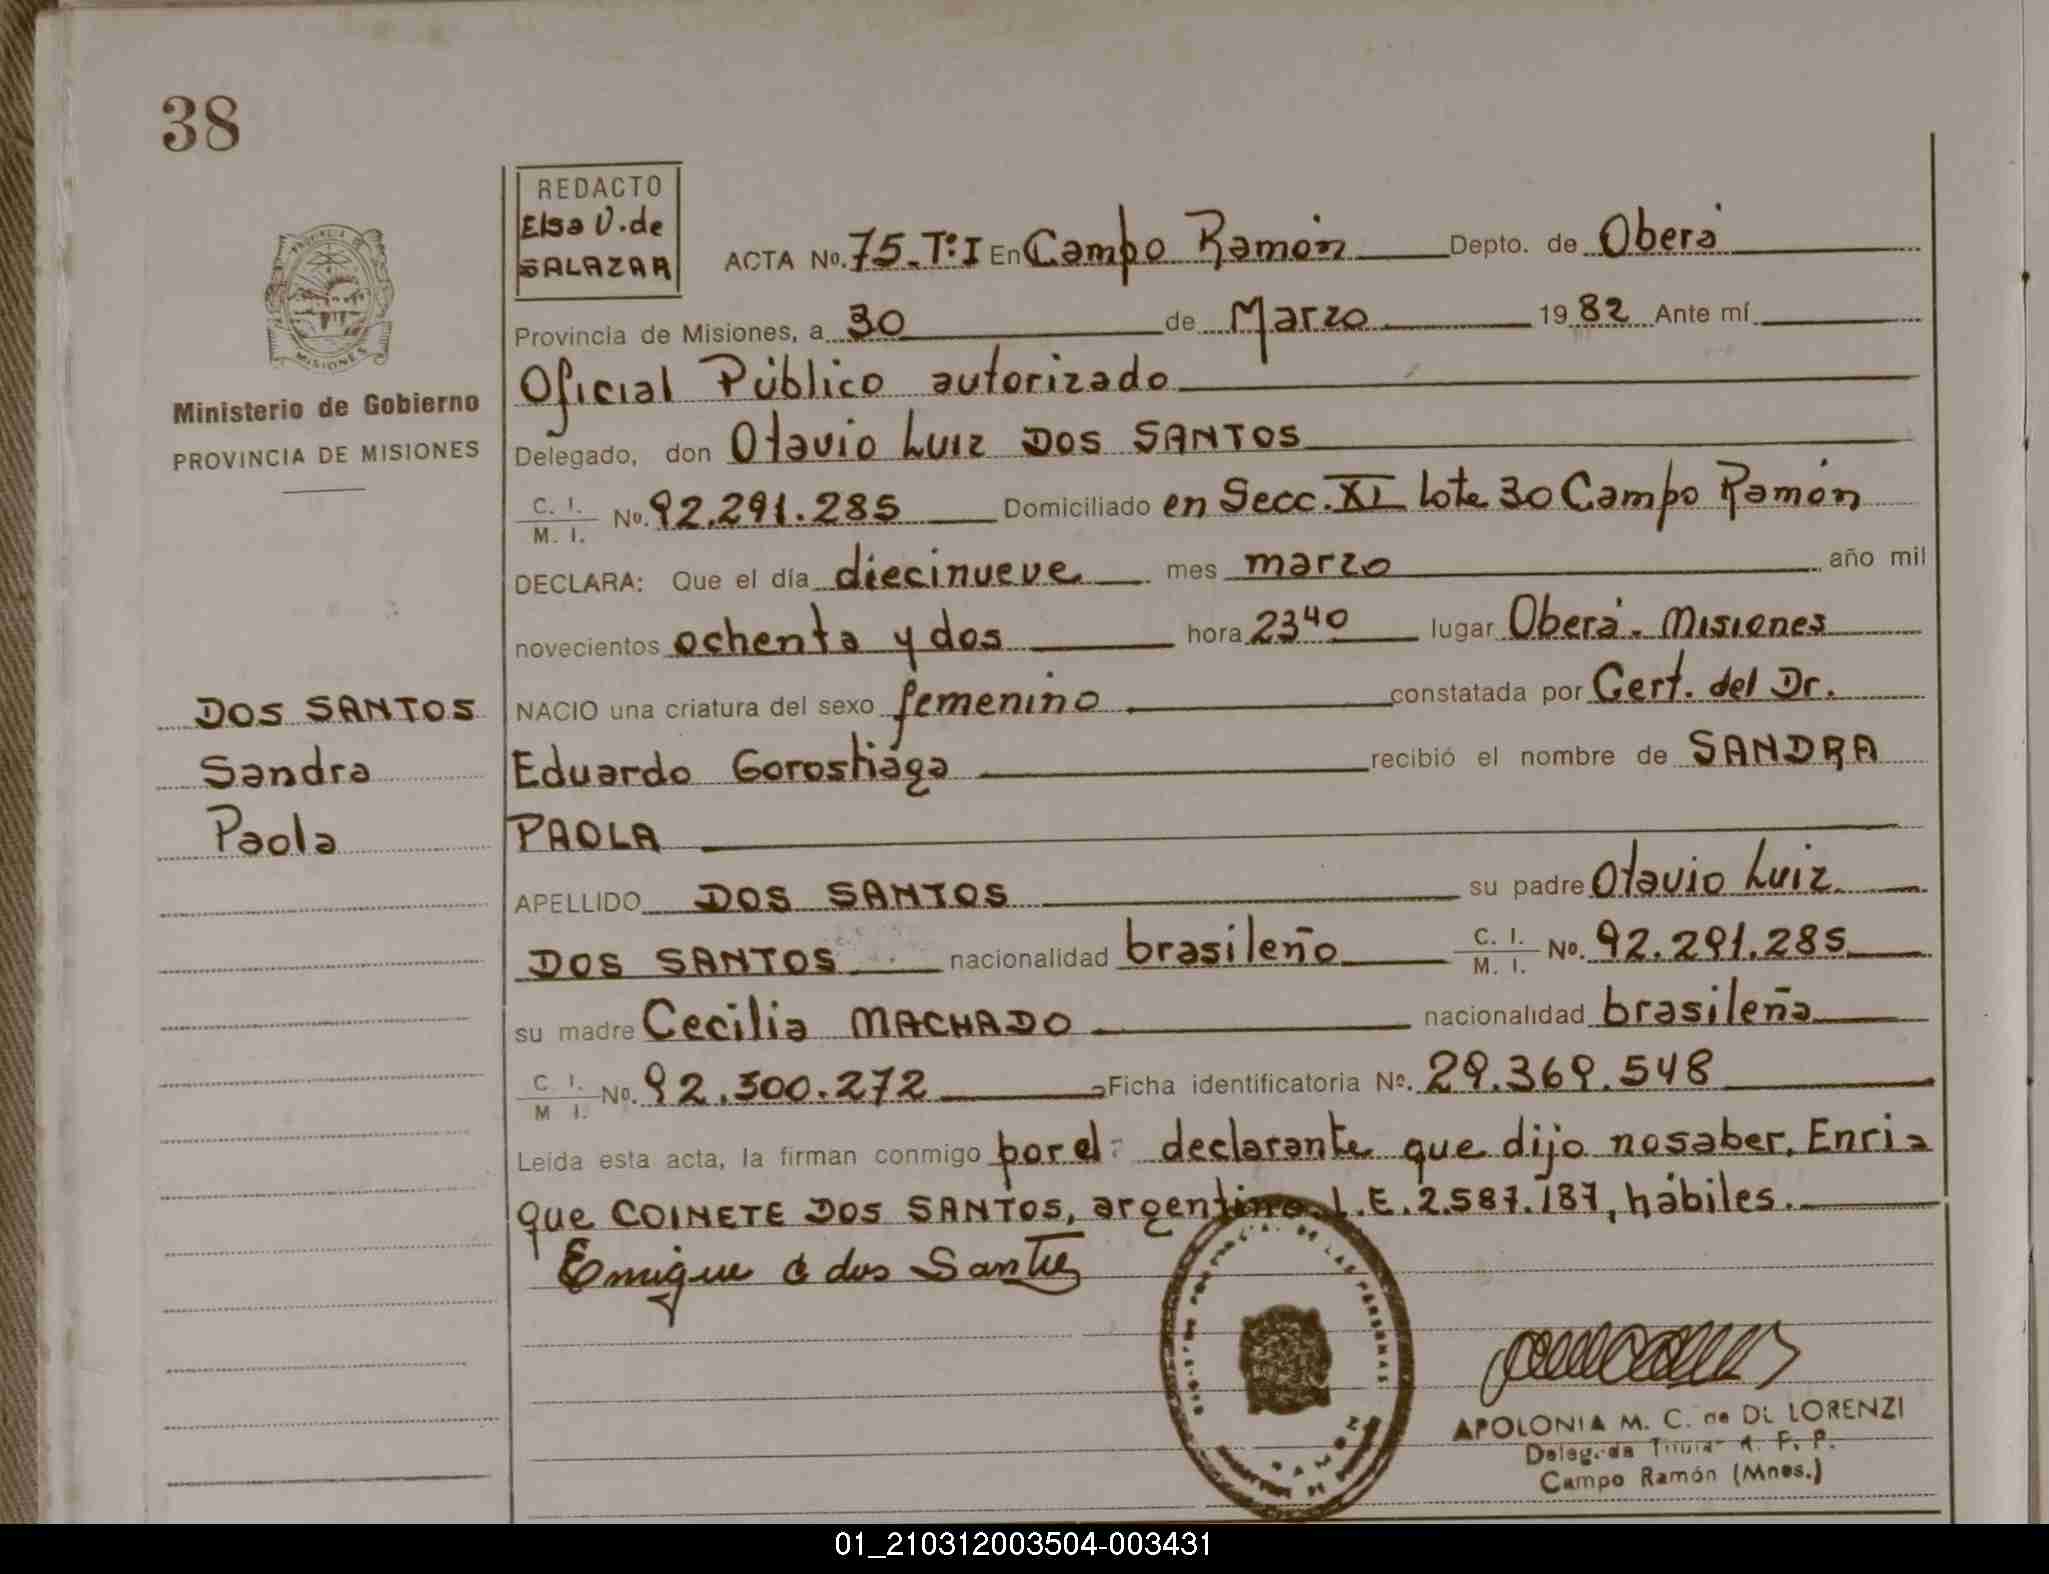 38
REDACTO
Elsa V. de
SALAZAR
ACTA No. 75-Tº I En Campo Ramón Depto. de Oberá
Provincia de Misiones, a 30 de Marzo 1982 Ante mí
Oficial Público autorizado
Delegado, don Otavio Luiz DOS SANTOS
C. I. / M. I. No. 92.291.285 Domiciliado en Secc. XI Lote 30 Campo Ramón
DECLARA: Que el día diecinueve mes marzo año mil
novecientos ochenta y dos hora 23⁴⁰ lugar Oberá - Misiones
NACIO una criatura del sexo femenino constatada por Cert. del Dr.
Eduardo Gorostiaga recibió el nombre de SANDRA
PAOLA
APELLIDO DOS SANTOS su padre Otavio Luiz
DOS SANTOS nacionalidad brasileño C. I. / M. I. No. 92.291.285
su madre Cecilia MACHADO nacionalidad brasileña
C I. / M I. No. 92.300.272 Ficha identificatoria Nº. 29.369.548
Leída esta acta, la firman conmigo por el declarante que dijo no saber, Enri
que COINETE DOS SANTOS, argentino L.E. 2.587.187, hábiles.
Enrique C dos Santos
MISIONES
Ministerio de Gobierno
PROVINCIA DE MISIONES
DOS SANTOS
Sandra
Paola
DE LAS PERSONAS
APOLONIA M. C. de DE LORENZI
Delegada Titular R. F. P.
Campo Ramón (Mnes.)
01_210312003504-003431